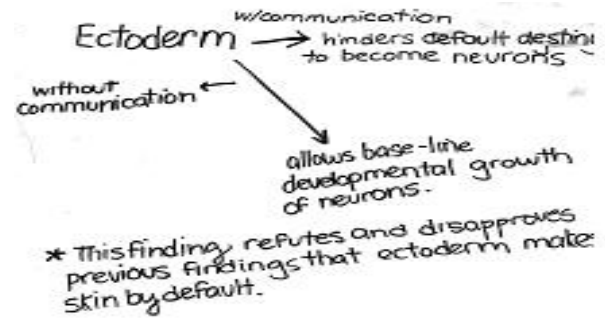 w/communication
Ectoderm → hinders default destini
to become neurons
without ←
communication
allows base-line
developmental growth
of neurons.
* This finding, refutes and disapproves
previous findings that ectoderm make
skin by default.